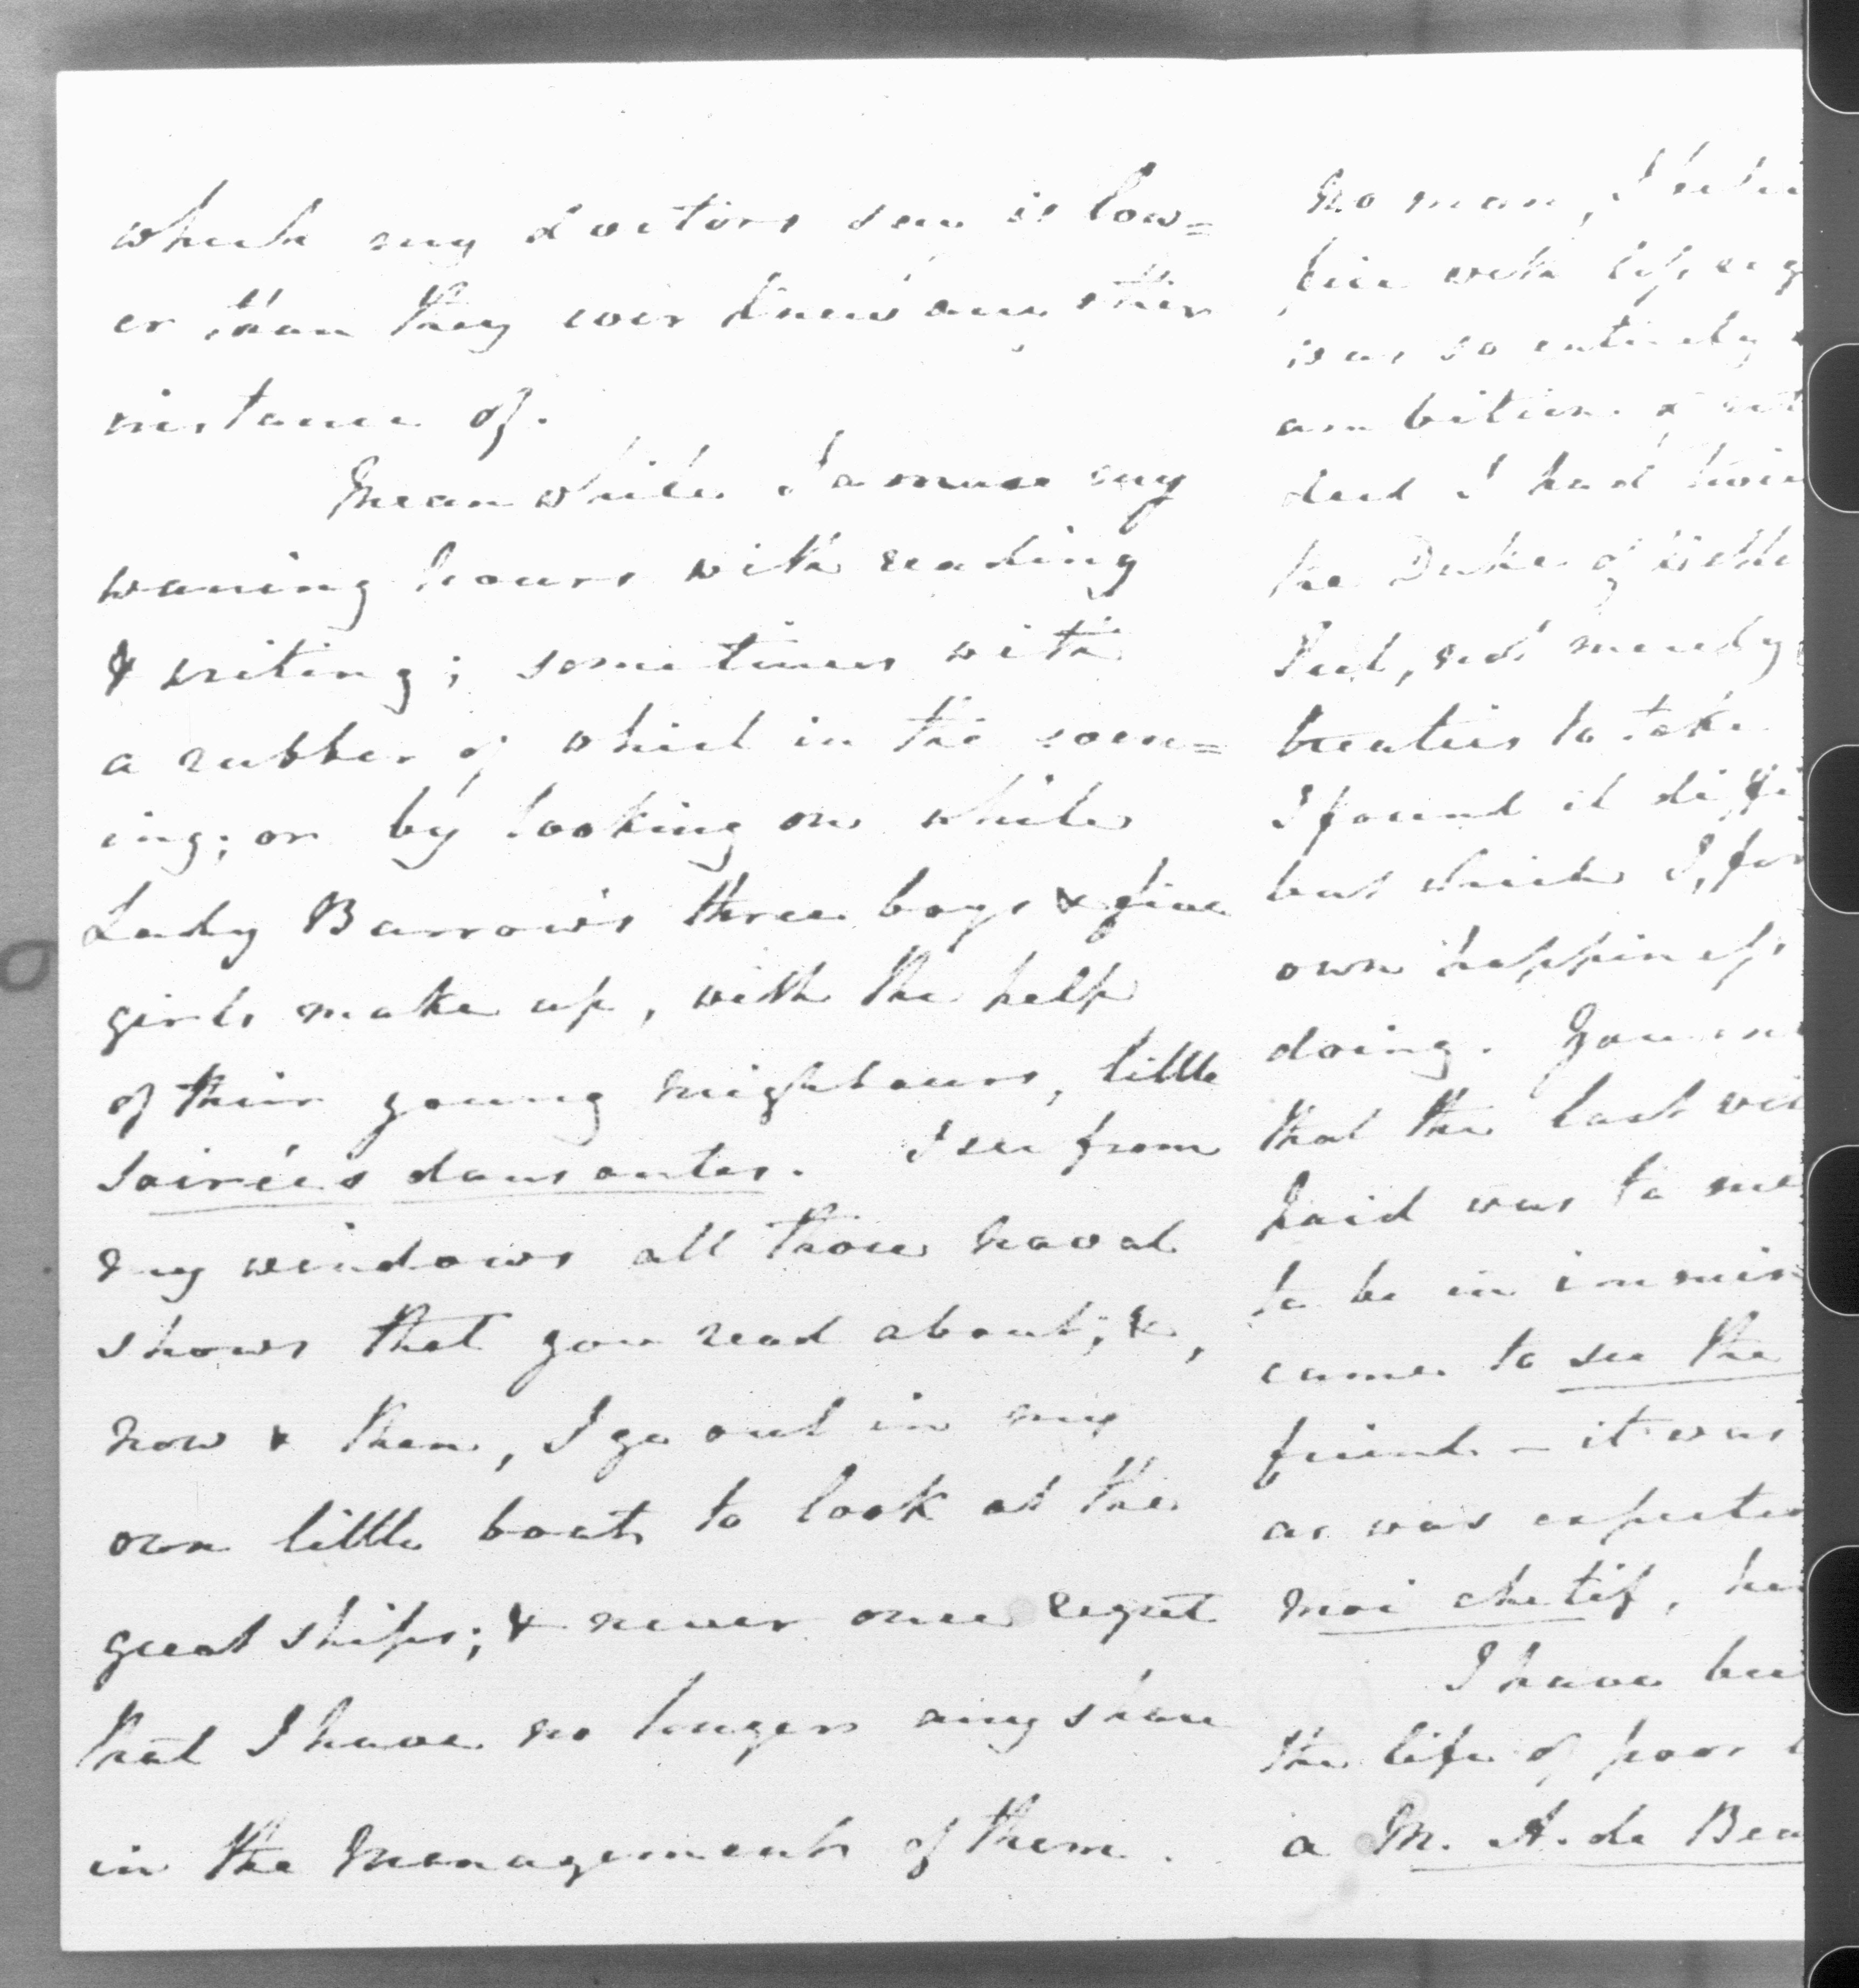 which my doctors say is low=
er than they ever knew any other
instance of.
Meanwhile I amuse my
waning hours with reading
& writing; sometimes with
a rubber of whist in the even=
ing; or by looking on while
Lady Barrow's three boys & five
girls make up, with the help
of their young neighbours, little
soirées dansantes. I see from
my windows all those naval
shows that you read about; &,
now & then, I go out in my
own little boat to look at the
great ships; & never once regret
that I have no longer any share
in the management of them.
No man, I
with
was so entirely
ambition &
I had
the Duke of
Peel, not merely
treaties to take
I found it
but which I, for
own happiness
doing. You
that the last
paid was to me
to be in
came to see the
friend - it was
as was
moi chetif,
I have
the life of poor
a M. A. de